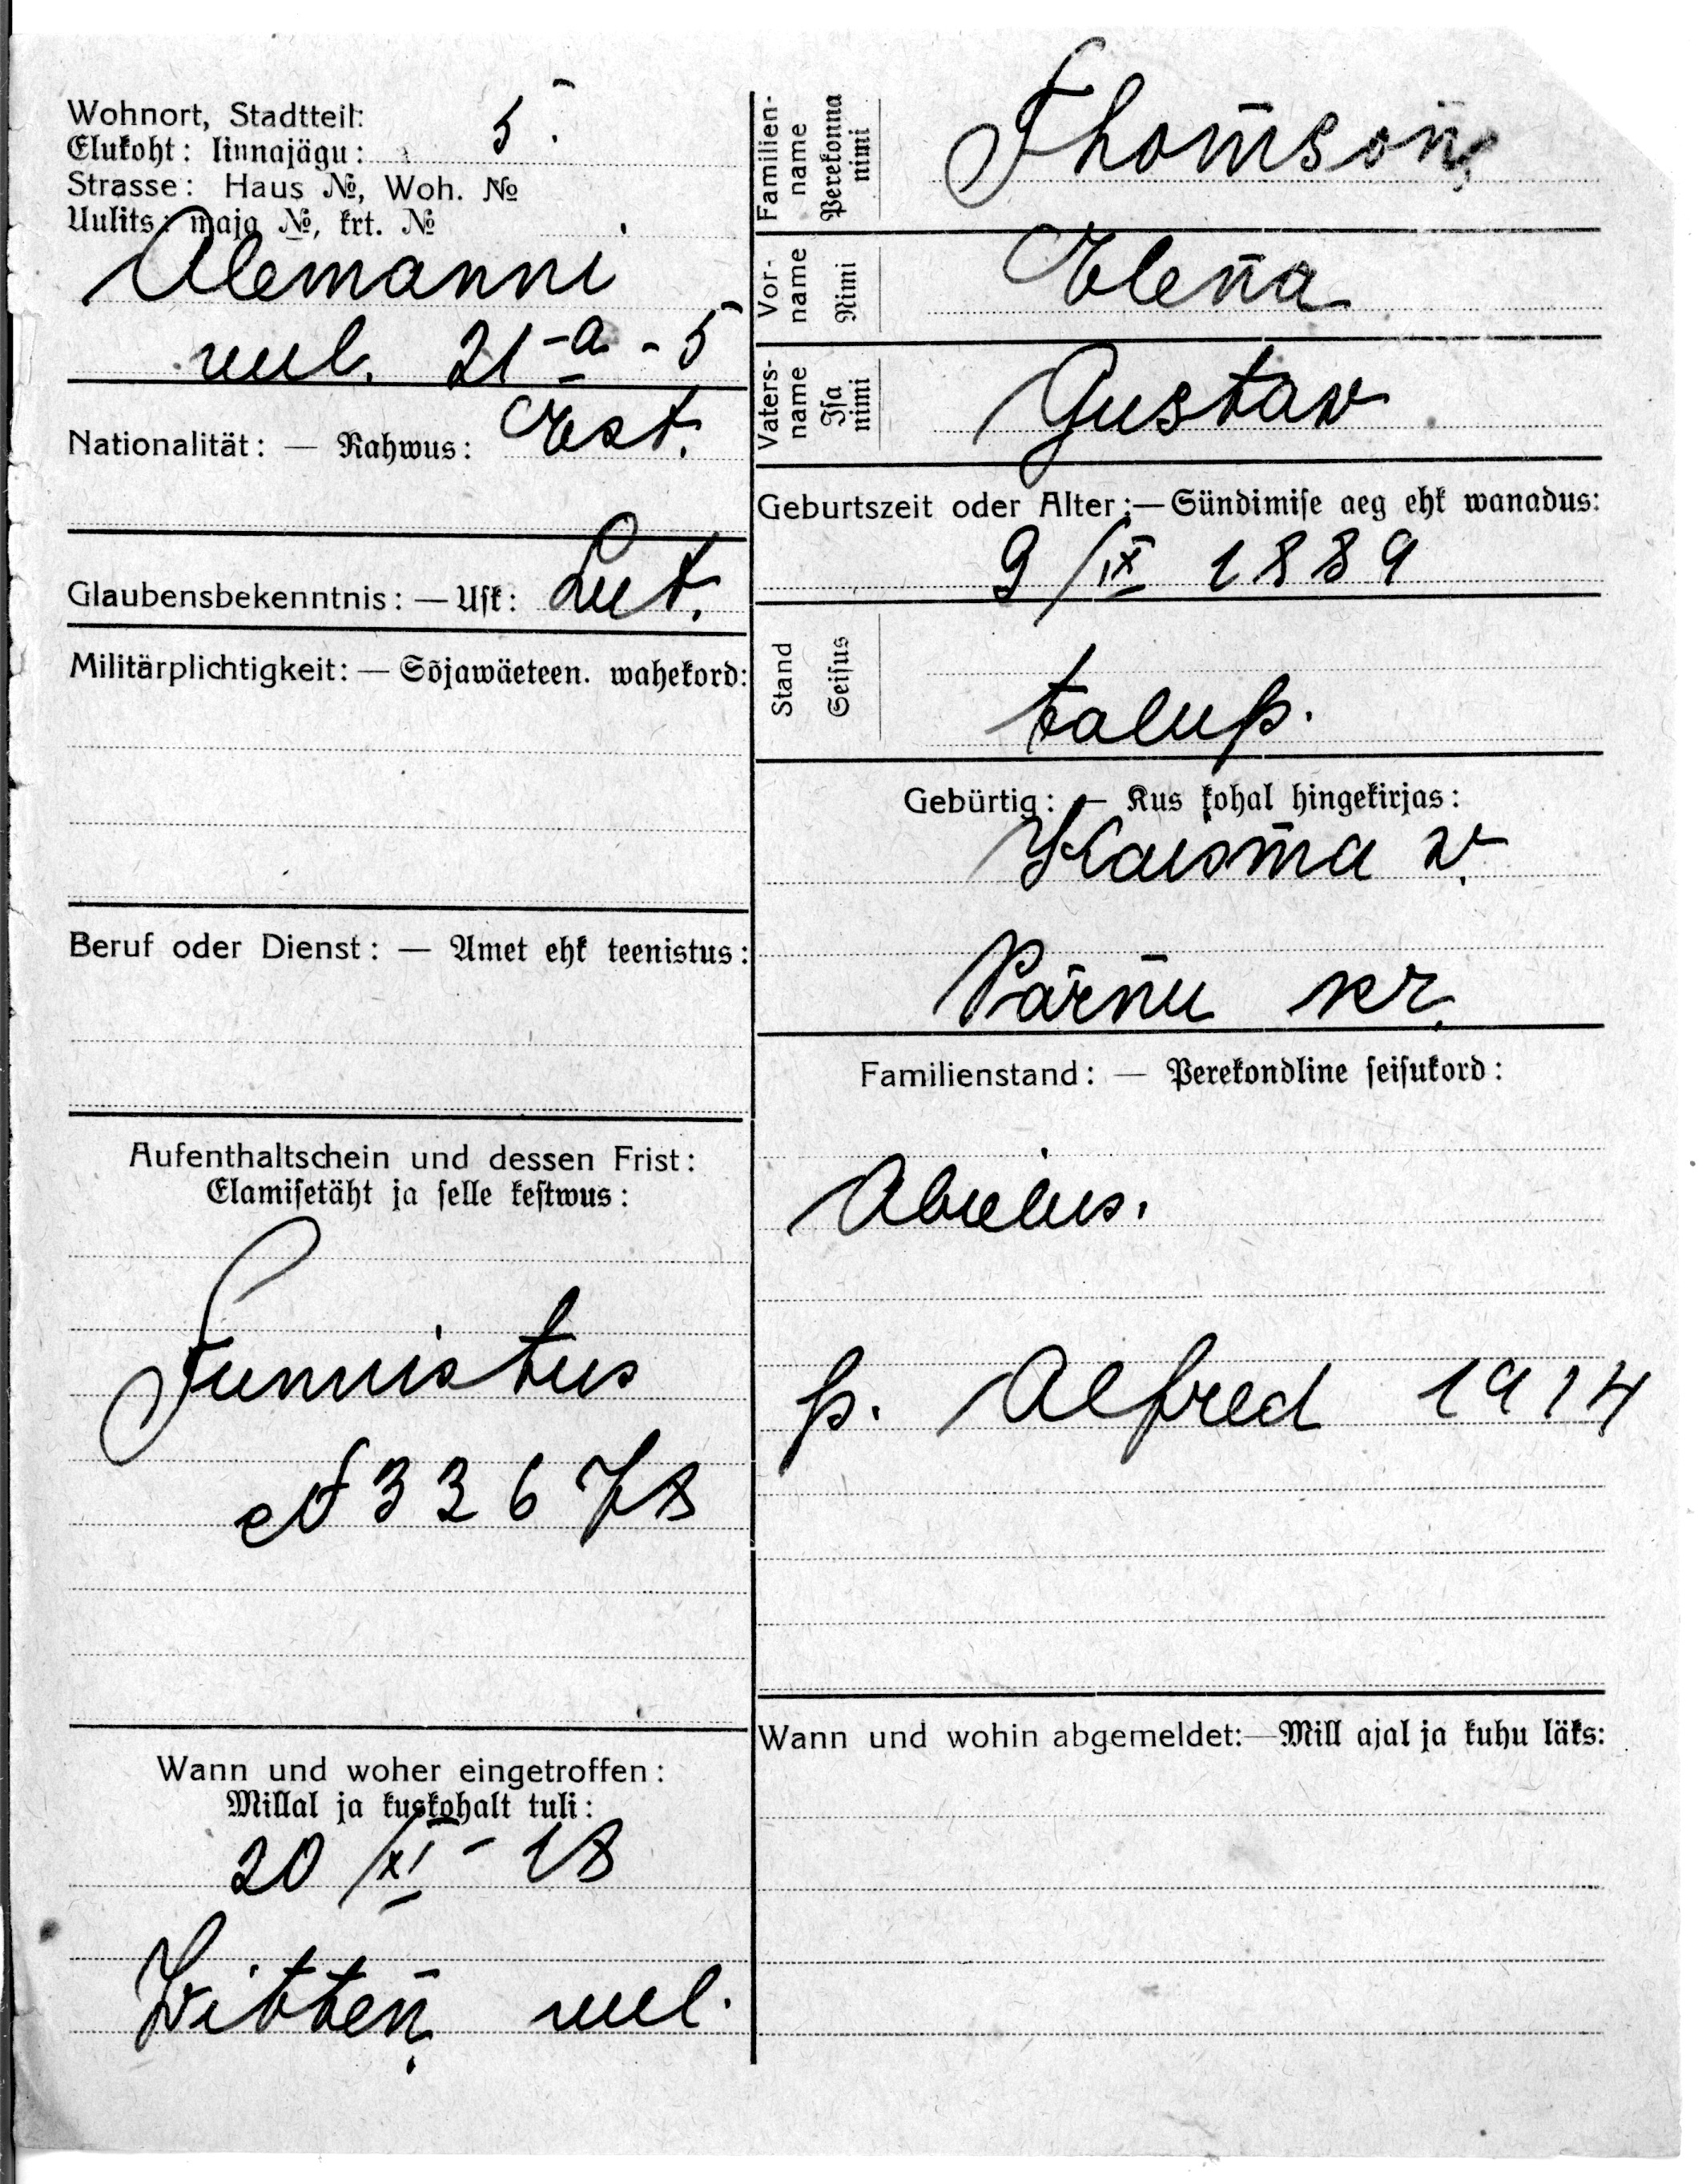 Wohnort, Stadtteil:
Elukoht: linnajägu: 5.
Strasse: Haus №, Woh. №
Uulits: maja №, krt. №
Alemanni
uul. 21-a - 5
Nationalität: — Rahwus: Est.
Glaubensbekenntnis: — Usk: Lut.
Militärplichtigkeit: — Sõjawäeteen. wahekord:
Beruf oder Dienst: — Amet ehk teenistus:
Aufenthaltschein und dessen Frist:
Elamisetäht ja selle kestwus:
Tunnistus
№ 33678
Wann und woher eingetroffen:
Millal ja kuskohalt tuli:
20/XI - 18
Witten uul.
Familien-
name
Perekonna
nimi
Thomson
Vor-
name
Nimi
Elena
Vaters-
name
Isa
nimi
Gustav
Geburtszeit oder Alter: — Sündimise aeg ehk wanadus:
9/IX 1889
Stand
Seisus
talup.
Gebürtig: — Kus kohal hingekirjas:
Kaisma v.
Pärnu kr.
Familienstand: — Perekondline seisukord:
Abielus.
p. Alfred 1914
Wann und wohin abgemeldet: — Mill ajal ja kuhu läks: